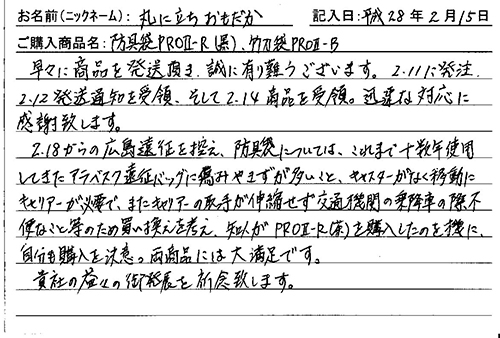 お名前(ニックネーム): 丸に立ちおもだか 記入日:平成28年2月15日
ご購入商品名: 防具袋PROⅡ-R(黒)、竹刀袋PROⅡ-B
早々に商品を発送頂き、誠に有り難うございます。2.11に発注、
2.12発送通知を受領、そして2.14商品を受領。迅速な対応に
感謝致します。
2.18からの広島遠征を控え、防具袋については、これまで十数年使用
してきたアラベスク遠征バッグに痛みやきずが多いこと、キャスターがなく移動に
キャリアーが必要で、またキャリアーの取手が伸縮せず交通機関の乗降車の際不
便なこと等のため買い換えを考え、知人がPROⅡ-R(茶)を購入したのを機に、
自分も購入を決意。両商品には大満足です。
貴社の益々の御発展を祈念致します。